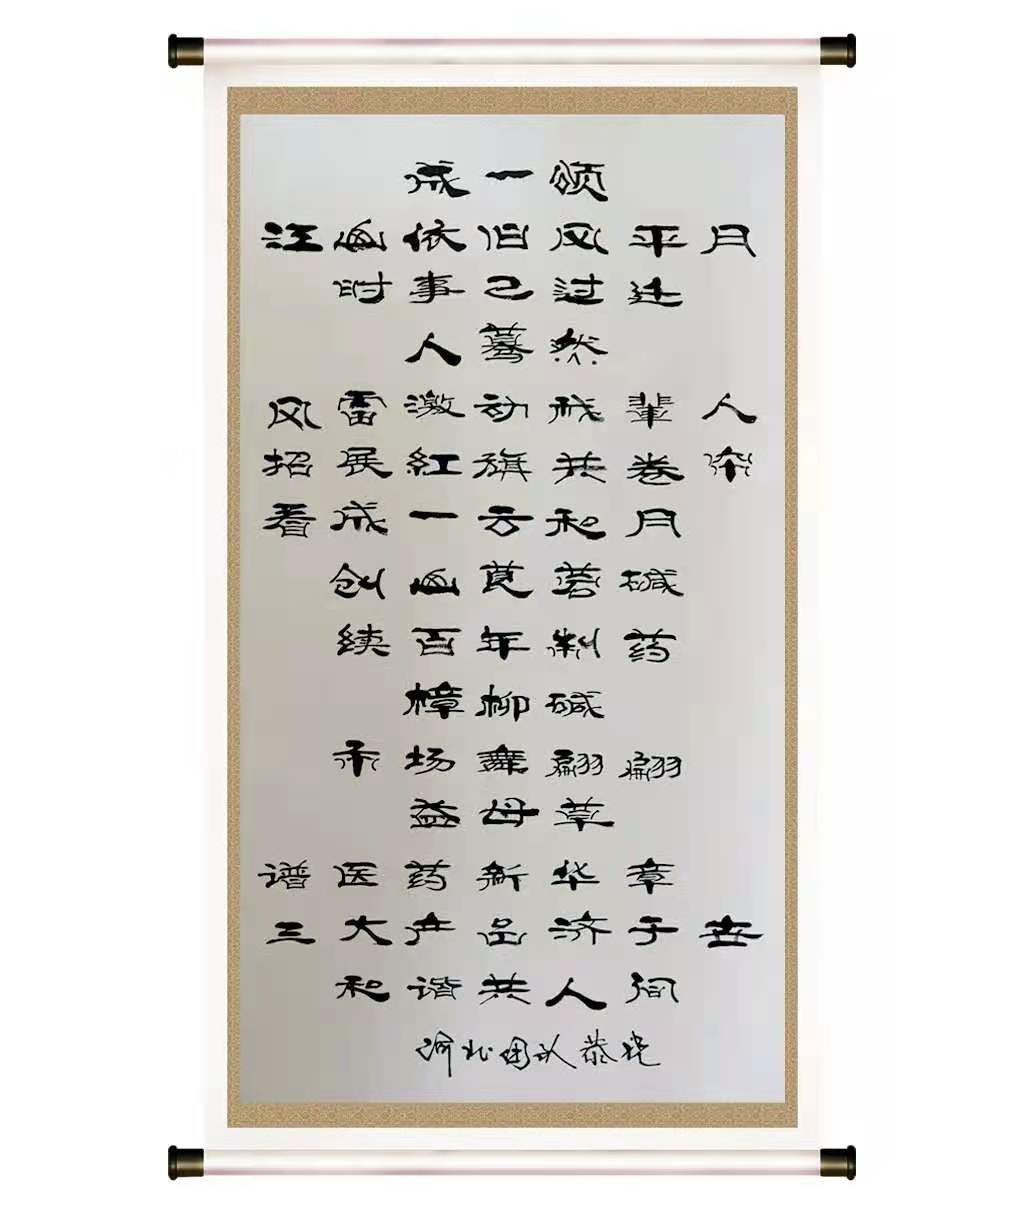 成一颂
江山依旧风平月
时事已过迁
人蓦然
风雷激动我辈人
招展紅旗共卷
看成一云和月
创山莨菪碱
续百年制药
樟柳碱
市场舞翩翩
益母草
谱医药新华章
三大产品济于世
和谐共人间
河北团队恭